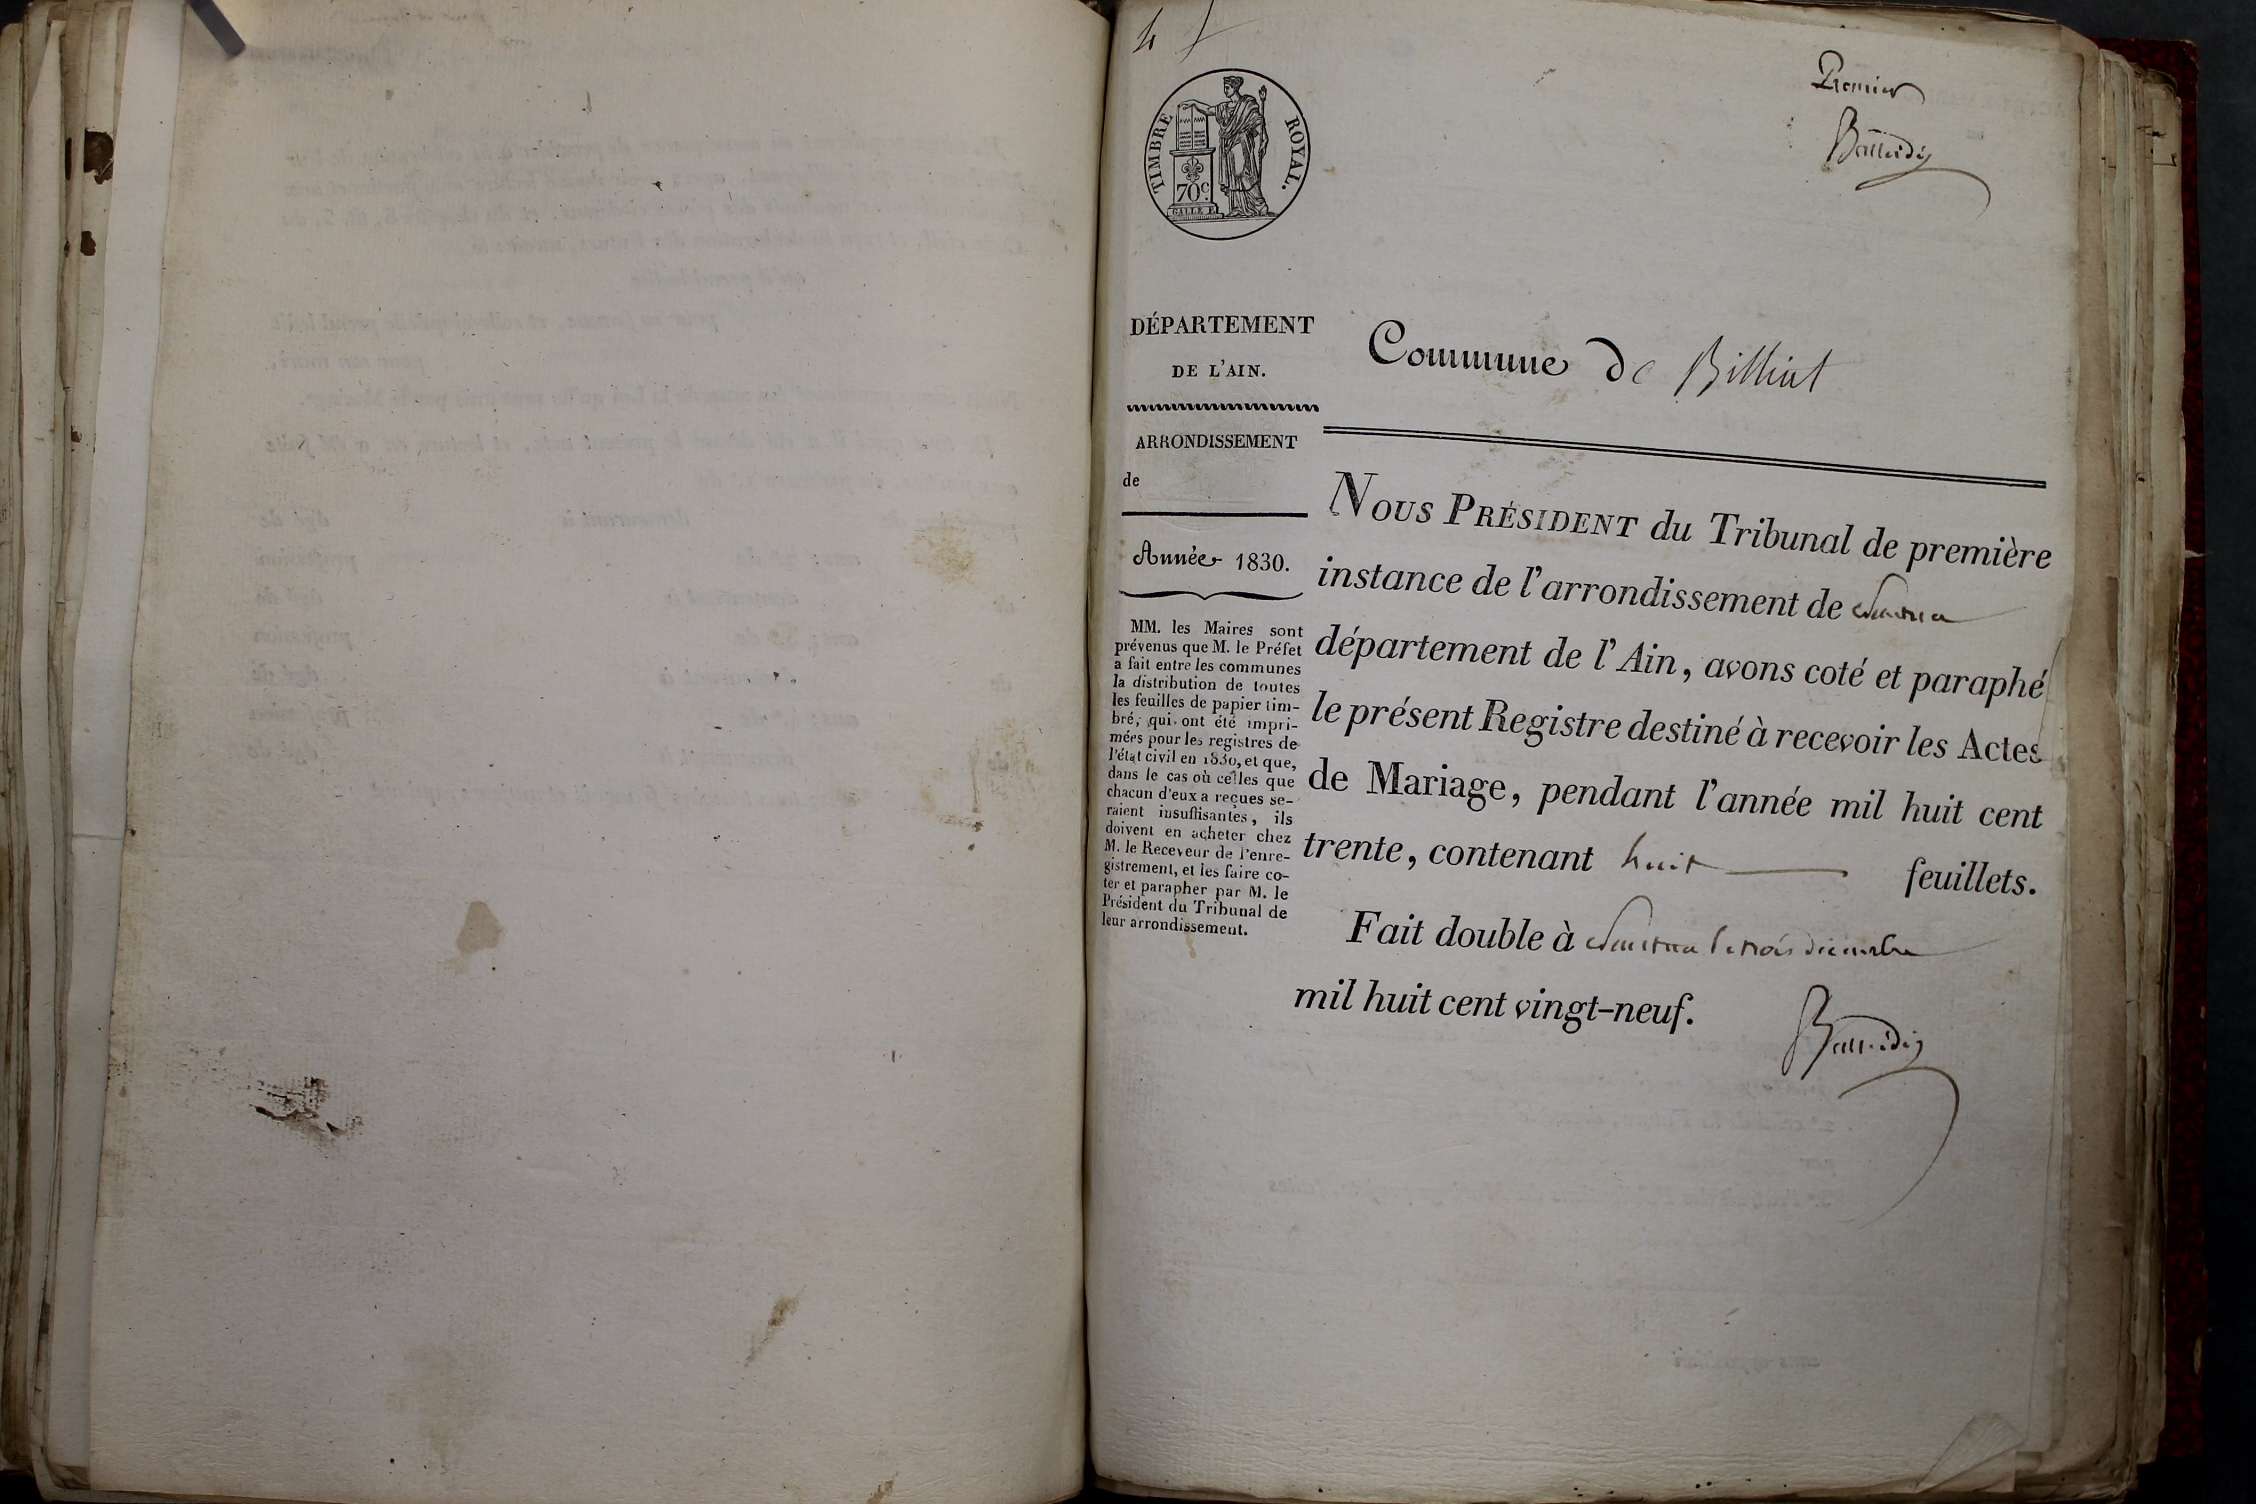 4
Premier
TIMBRE ROYAL.
70c.
GALLE F.
DÉPARTEMENT
DE L'AIN.
Commune de Billiat
ARRONDISSEMENT
de
Année 1830.
MM. les Maires sont
prévenus que M. le Préfet
a fait entre les communes
la distribution de toutes
les feuilles de papier tim-
bré, qui ont été impri-
mées pour les registres de
l'état civil en 1830, et que,
dans le cas où celles que
chacun d'eux a reçues se-
raient insuffisantes, ils
doivent en acheter chez
M. le Receveur de l'enre-
gistrement, et les faire co-
ter et parapher par M. le
Président du Tribunal de
leur arrondissement.
NOUS PRÉSIDENT du Tribunal de première
instance de l'arrondissement de Nantua
département de l'Ain, avons coté et paraphé
le présent Registre destiné à recevoir les Actes
de Mariage, pendant l'année mil huit cent
trente, contenant huit feuillets.
Fait double à Nantua le trois décembre
mil huit cent vingt-neuf.